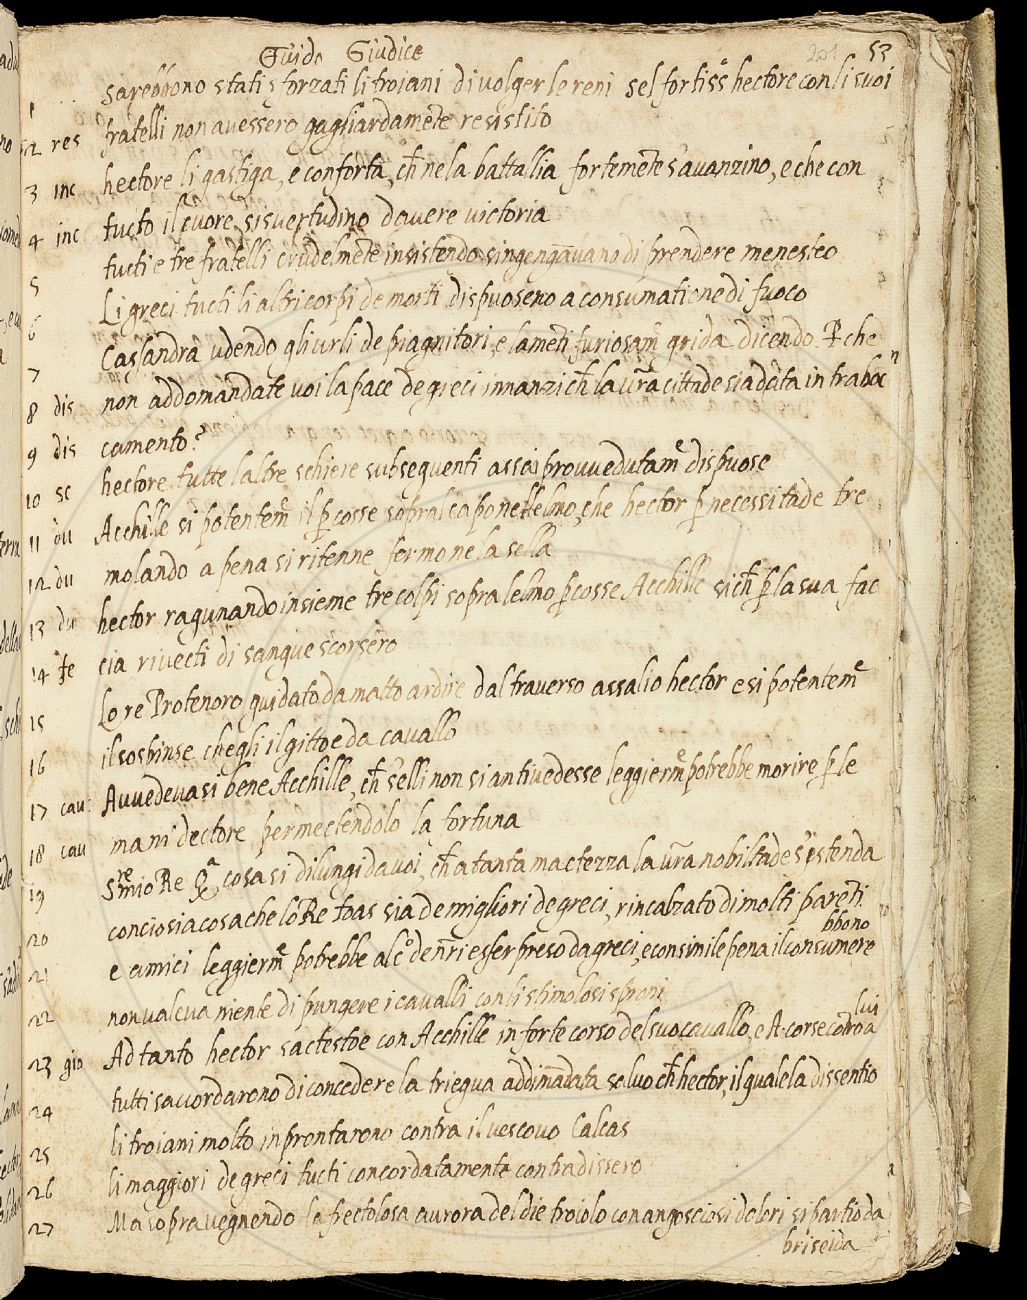 Guido Giudice
201 53
sarebbono stati sforzati li troiani di volger le reni sel fortiss° hectore con li suoi
fratelli non avessero gagliardamẽte resistito
hectore li gastiga, e conforta, ch̃ ne la battallia fortemẽte s'avanzino, e che con
tucto il cuore sisvertudino davere victoria
tucti e tre fratelli crudelmẽte insistendo singengnavano di prendere menesteo
Li greci tucti li altri corpi de morti dispuoseno a consumatione di fuoco
Cassandra udendo gliurli de piagnitori, e lamẽti furiosamẽ grida dicendo. P̱ che
non addomandate voi la pace de greci innanzi ch̃ la vr̃a cittade sia data in traboc
camento?
hectore tutte laltre schiere subsequenti assai provvedutamẽ dispuose
Acchille si potentemẽ il p̱cosse sopral capo nellelmo, che hector p̱ necessitade tre
molando a pena si ritenne fermo ne la sella
hector ragunando insieme tre colpi sopra lelmo p̱cosse Acchille sich̃ p̱ la sua fac
cia rivecti di sangue scorsero
Lo re Protenoro guidato da matto ardire dal traverso assalio hector e si potentemẽ
il sospinse chegli il gittoe da cavallo
Avvedevasi bene Acchille, ch̃ s'elli non si antivedesse leggiermẽ potrebbe morire p̱ le
mani dectore permectendolo la fortuna
Sre mio Re Qa cosa si dilungi da voi, ch̃ a tanta mactezza la vr̃a nobiltade s'istenda
conciosiacosache lo Re toas sia de migliori de greci, rincalzato di molti parẽti
e amici leggiermẽ potrebbe alc° de nr̃i esser preso da greci, e consimile pena il consumere
bbono
non valeva niente di pungere i cavalli con li stimolosi sproni
Ad tanto hector sactestoe con Acchille in forte corso del suo cavallo, e A. corse contro a
lui
tutti saccordarono di concedere la triegua addimãdata salvo ch̃ hector, il quale la dissentio
li troiani molto inprontarono contra il vescovo Calcas
li maggiori de greci tucti concordatamente contradissero
Ma sopravegnendo la frectolosa aurora del die troiolo con angosciosi dolori si partio da
briseida
1
2 res
3 inc
4 inc
5
6
7
8 dis
9 dis
10 sc
11 du
12 du
13 du
14 fe
15
16
17 cau:
18 cau
19
20
21
22
23 gio
24
25
26
27